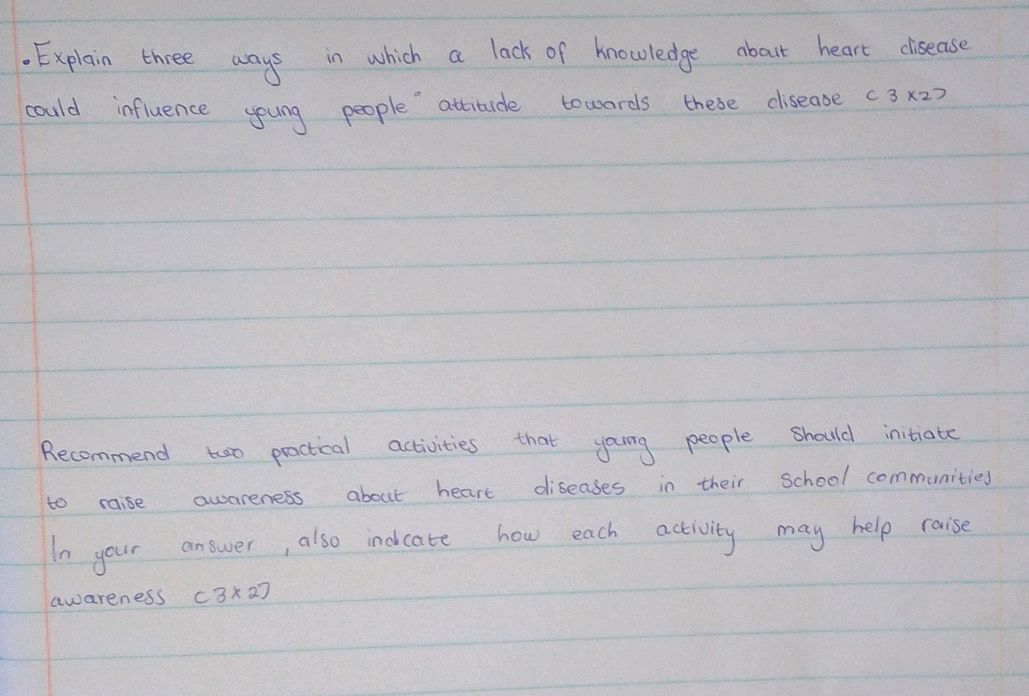 • Explain three ways in which a lack of knowledge about heart disease
could influence young people" attitude towards these disease (3x2)
Recommend two practical activities that young people should initiate
to raise awareness about heart diseases in their School communities
In your answer, also indicate how each activity may help raise
awareness (3x2)